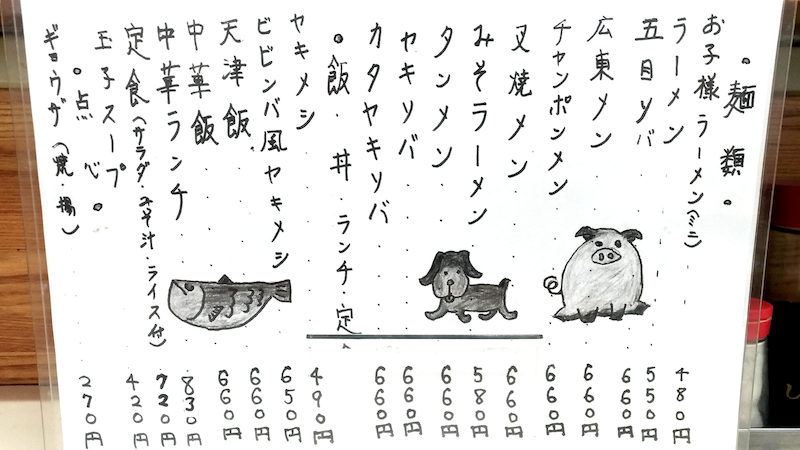 。麺類。
お子様ラーメン(ミニ) 480円
ラーメン 550円
五目ソバ 660円
広東メン 660円
チャンポンメン 660円
叉焼メン 660円
みそラーメン 580円
タンメン 660円
ヤキソバ 660円
カタヤキソバ 660円
。飯・丼・ランチ・定
ヤキメシ 490円
ビビンバ風ヤキメシ 650円
天津飯 660円
中華飯 660円
中華ランチ 830円
定食(サラダ・みそ汁・ライス付) 720円
玉子スープ 420円
。点心。
ギョウザ(焼・揚) 270円